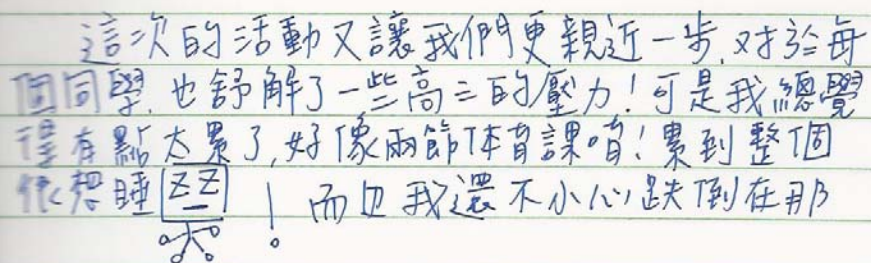 這次的活動又讓我們更親近一步,对於每
個同學,也舒解了一些高三的壓力!可是我總覺
得有點太累了,好像兩節体育課唷!累到整個
很想睡ZZ!而且我還不小心跌倒在那